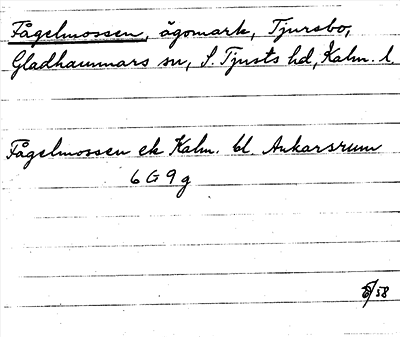 Fågelmossen, ägomark, Tjursbo,
Gladhammars sn, S. Tjusts hd, Kalm. l.
Fågelmossen ek Kalm. bl Ankarsrum
6G9g
/58